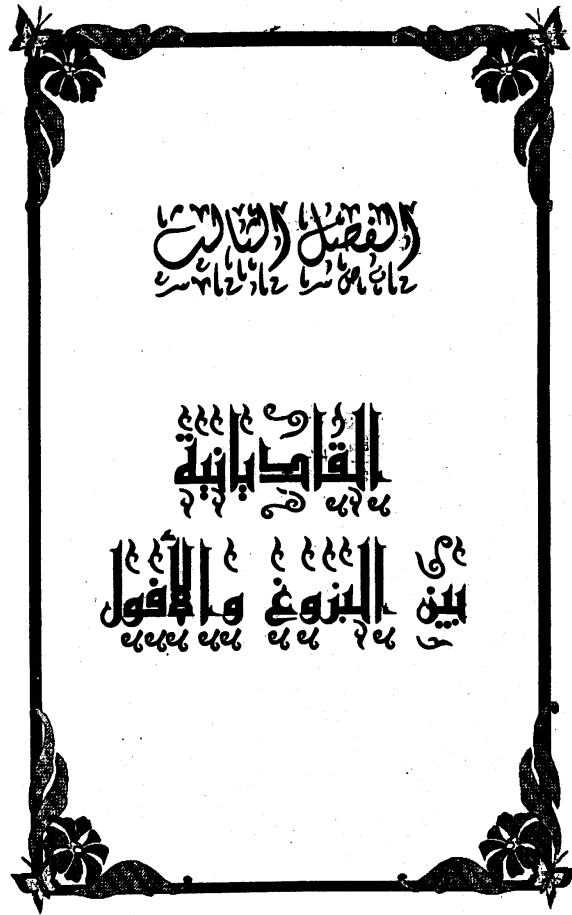 الفصل الثالث
القاديانية
بين البزوغ والأفول